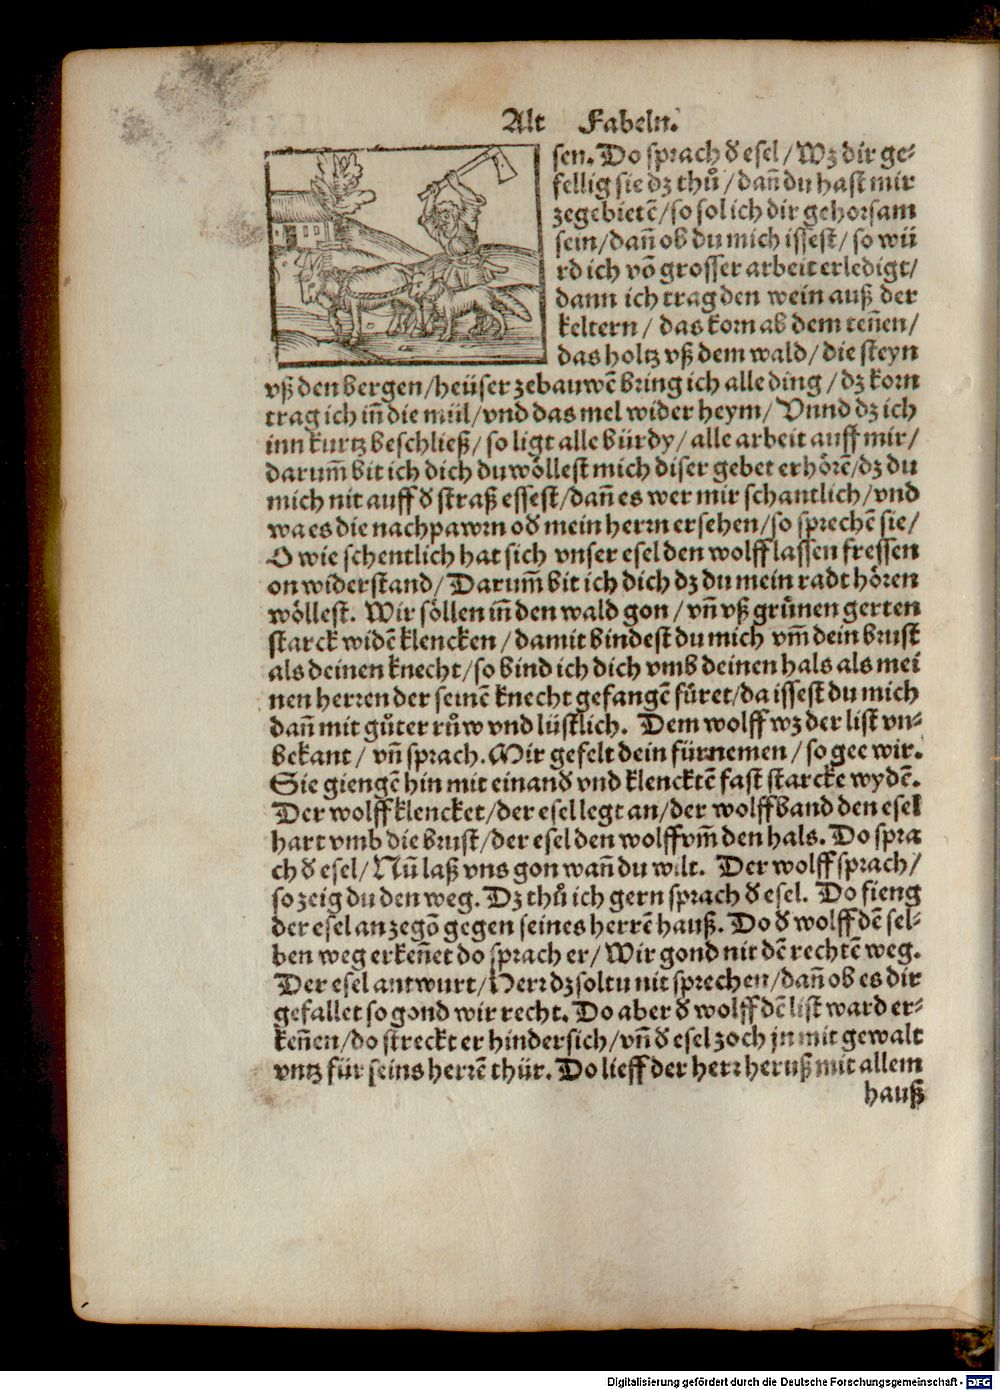 Alt Fabeln.
sen. Do sprach ð esel / Wz dir ge⸗
fellig sie dz thů / dañ du hast mir
zegebietē / so sol ich dir gehorsam
sein / dañ ob du mich issest / so wü
rd ich võ grosser arbeit erledigt /
dann ich trag den wein auß der
keltern / das korn ab dem teñen /
das holtz vß dem wald / die steyn
vß den bergen / heüser zebauwē bring ich alle ding / dz korn
trag ich iñ die mül / vnd das mel wider heym / Vnnd dz ich
inn kurtz beschließ / so ligt alle bürdy / alle arbeit auff mir /
darum̃ bit ich dich du wöllest mich diser gebet erhörē / dz du
mich nit auff ð straß essest / dañ es wer mir schantlich / vnd
wa es die nachpawrn oð mein herrn ersehen / so sprechē sie /
O wie schentlich hat sich vnser esel den wolff lassen fressen
on widerstand / Darum̃ bit ich dich dz du mein radt hören
wöllest. Wir söllen iñ den wald gon / vñ vß grünen gerten
starck widē klencken / damit bindest du mich vm̃ dein brust
als deinen knecht / so bind ich dich vmb deinen hals als mei
nen herren der seinē knecht gefangē füret / da issest du mich
dañ mit gůter růw vnd lüstlich. Dem wolff wz der list vn⸗
bekant / vñ sprach. Mir gefelt dein fürnemen / so gee wir.
Sie giengē hin mit einanð vnd klencktē fast starcke wydē.
Der wolff klencket / der esel legt an / der wolff band den esel
hart vmb die brust / der esel den wolff vm̃ den hals. Do spra
ch ð esel / Nũ laß vns gon wañ du wilt. Der wolff sprach /
so zeig du den weg. Dz thů ich gern sprach ð esel. Do fieng
der esel an zegõ gegen seines herrē hauß. Do ð wolff dē sel⸗
ben weg erkeñet do sprach er / Wir gond nit dē rechtē weg.
Der esel antwurt / Herr dz soltu nit sprechen / dañ ob es dir
gefallet so gond wir recht. Do aber ð wolff dē list ward er⸗
keñen / do streckt er hindersich / vñ ð esel zoch jn mit gewalt
vntz für seins herrē thür. Do lieff der herr heruß mit allem
hauß
Digitalisierung gefördert durch die Deutsche Forschungsgemeinschaft - DFG